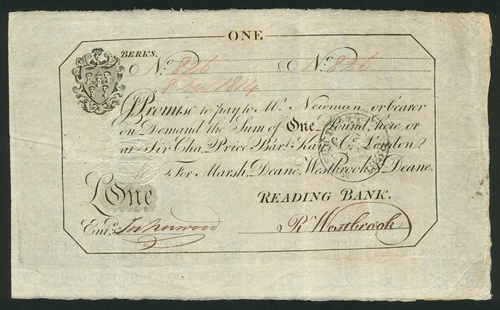 ONE
BERKS.
No. 826 No. 826
8 1814
I Promise to pay to Mr. Newman or bearer
on Demand the Sum of One Pound, here or
at Sir Cha. Price Bart. Kay & Co. London.
For Marsh, Deane, Westbrook & Deane.
£One READING BANK.
Entd. R. Westbrook